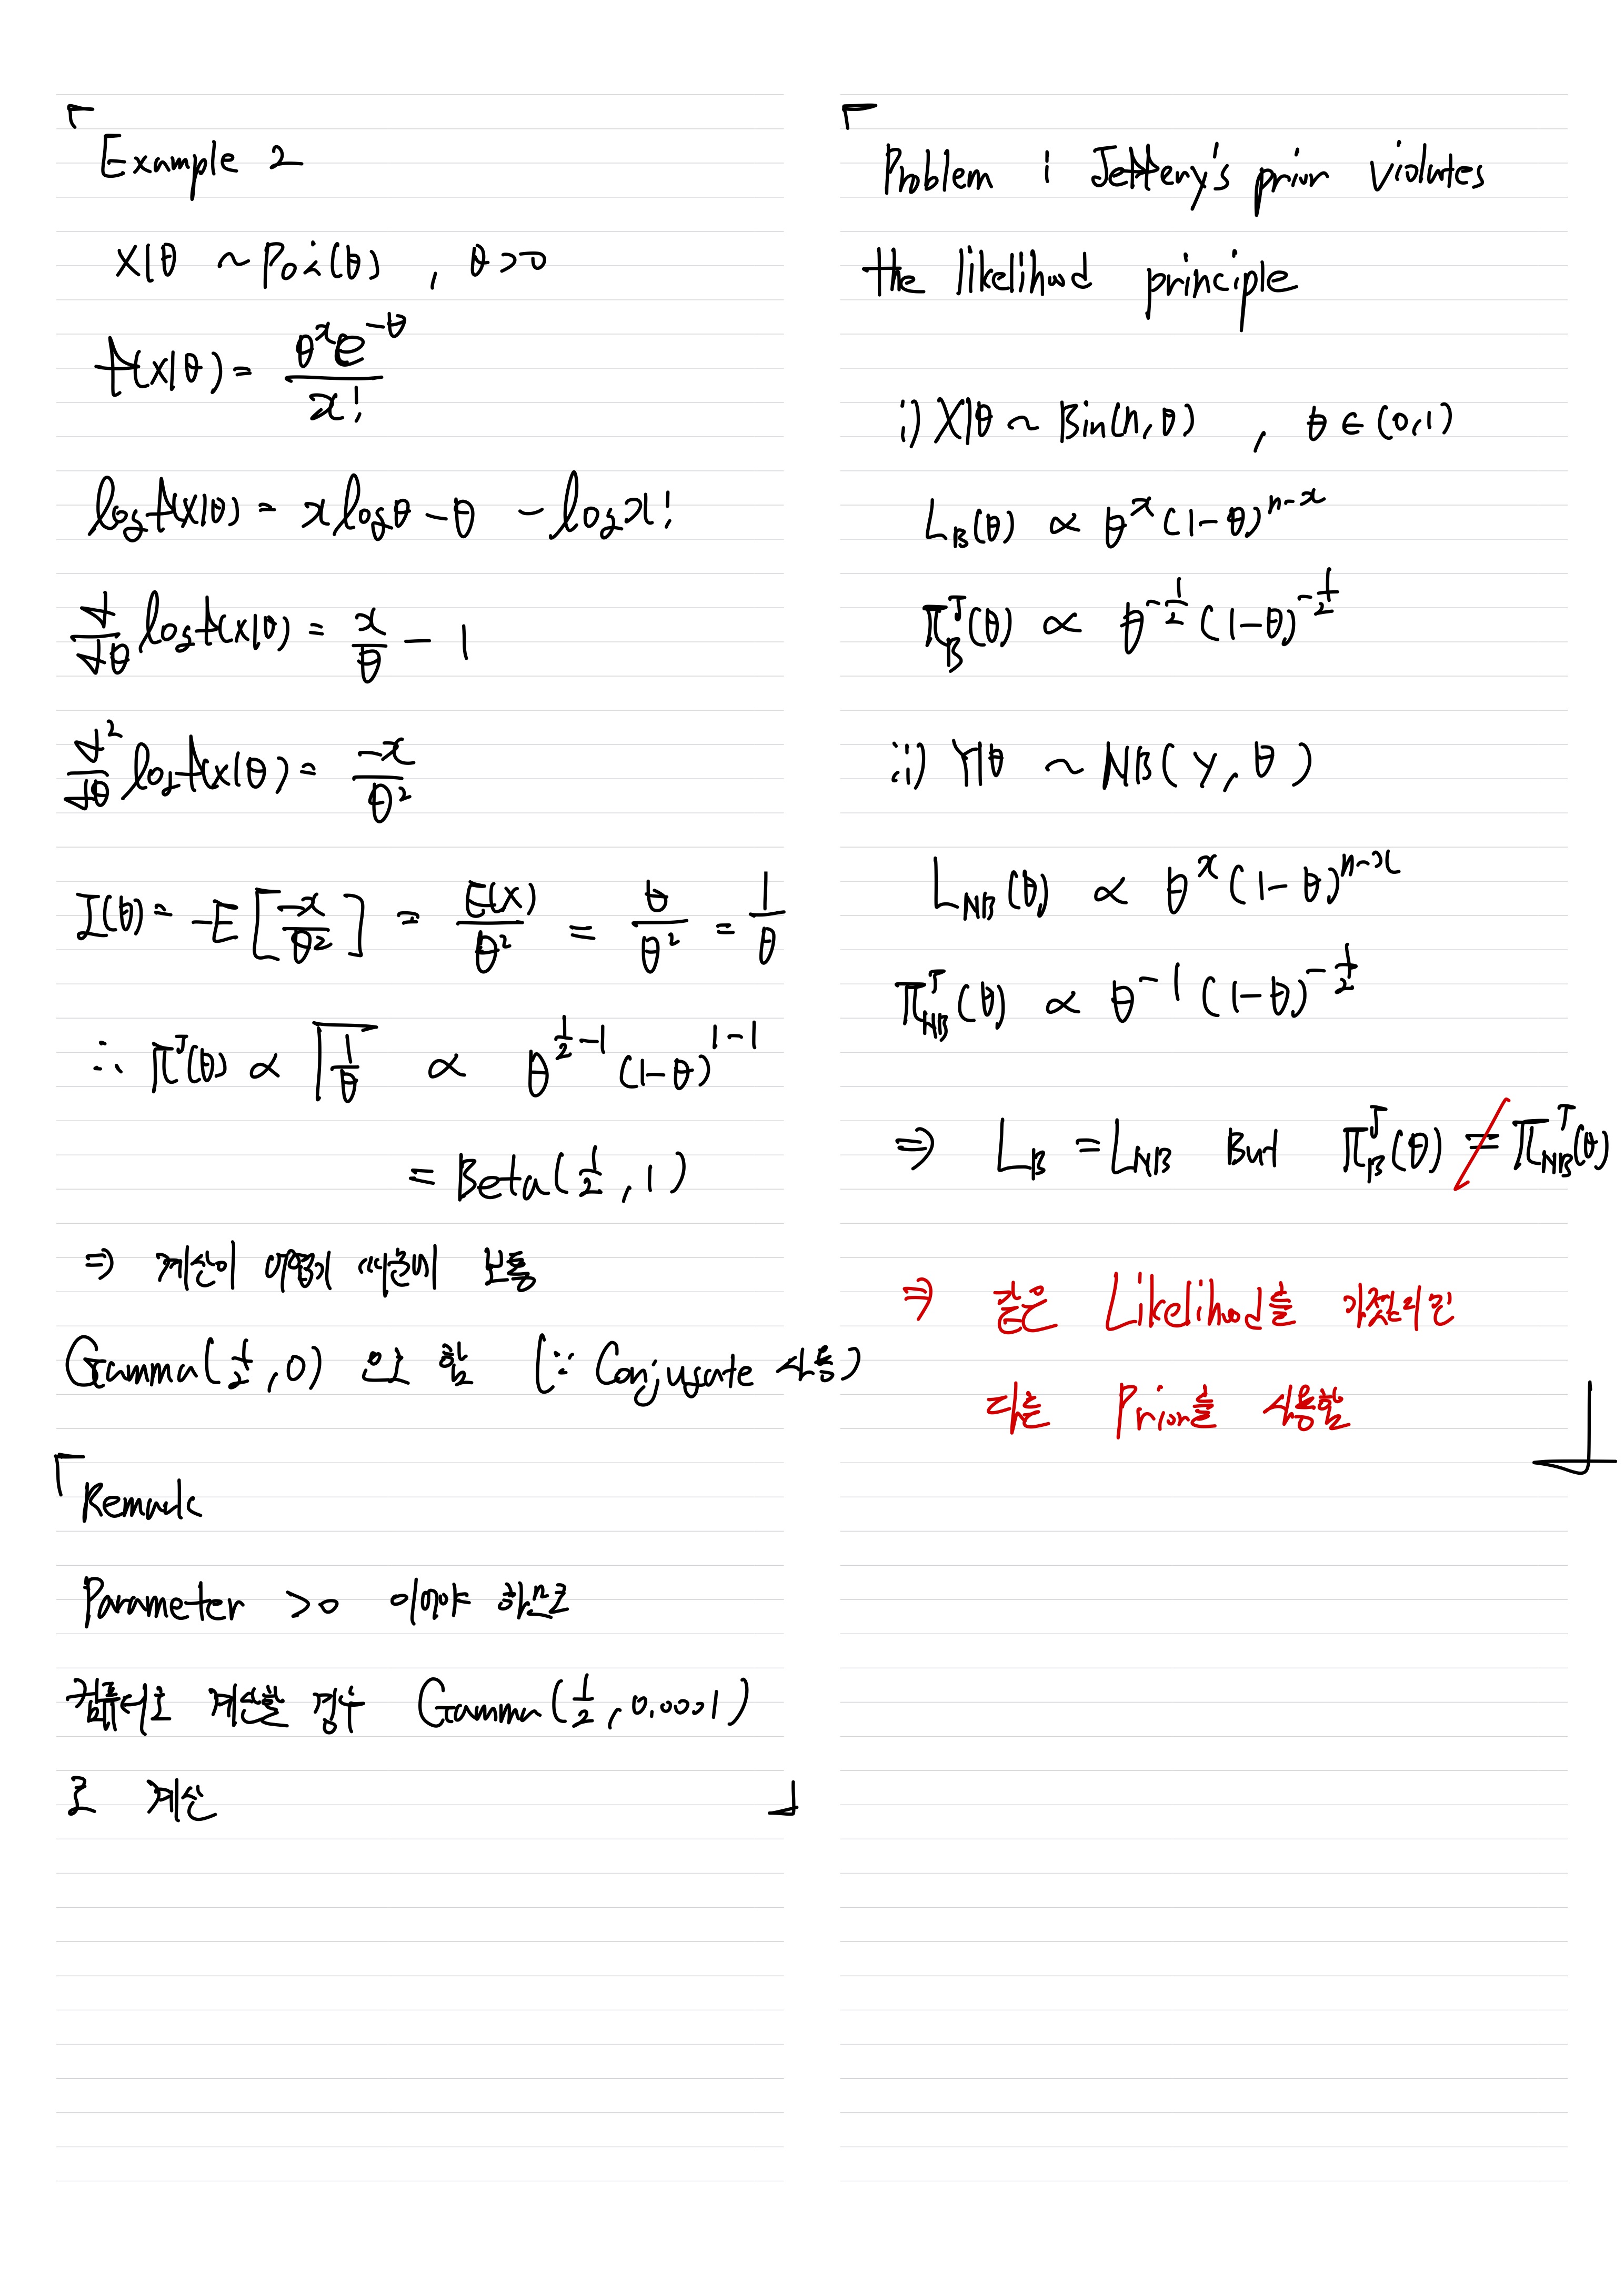 Example 2
X|θ ~ Poi(θ) , θ>0
f(x|θ) = θ^x e^{-θ} / x!
log f(x|θ) = x log θ - θ - log x!
d/dθ log f(x|θ) = x/θ - 1
d²/dθ log f(x|θ) = -x/θ²
I(θ) = -E[-x/θ²] = E(X)/θ² = θ/θ² = 1/θ
∴ π^J(θ) ∝ √(1/θ) ∝ θ^{1/2-1} (1-θ)^{1-1}
= Beta(1/2, 1)
⇒ 계산이 어렵기 때문에 보통
Gamma(1/2, 0) 으로 함 (∵ Conjugate 사용)
Remark
Parameter >0 이어야 하므로
컴퓨터로 계산할 경우 Gamma(1/2, 0.0001)
로 계산
Problem : Jeffery's prior violates
the likelihood principle
i) X|θ ~ Bin(n, θ) , θ ∈ (0,1)
L_B(θ) ∝ θ^x (1-θ)^{n-x}
π_B^J(θ) ∝ θ^{-1/2} (1-θ)^{-1/2}
ii) Y|θ ~ NB(y, θ)
L_NB(θ) ∝ θ^x (1-θ)^{n-x}
π_NB^J(θ) ∝ θ^{-1} (1-θ)^{-1/2}
⇒ L_B = L_NB But π_B^J(θ) ≠ π_NB^J(θ)
⇒ 같은 Likelihood를 가졌지만
다른 Prior를 사용함